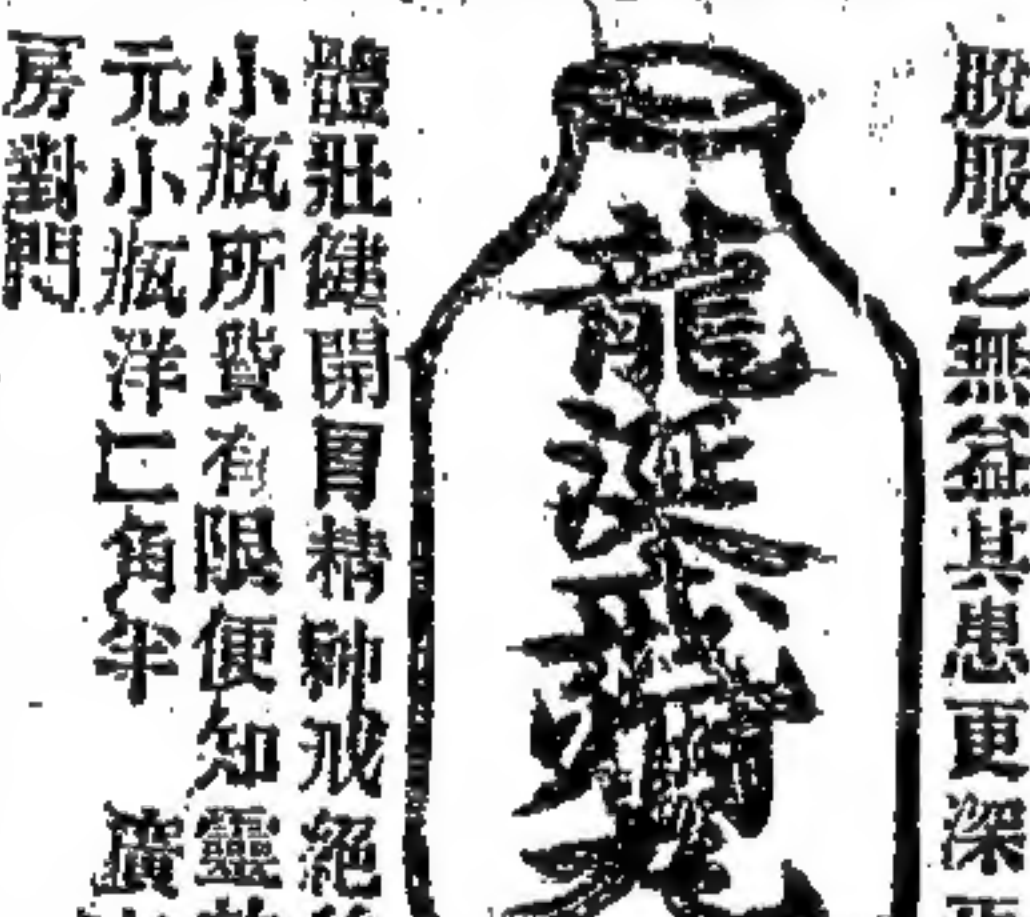 脫服之無益其患更深
龍涎
體壯健開胃精神戒絕
小瓶所費有限便知靈
元小瓶洋二角半 廣
房對門